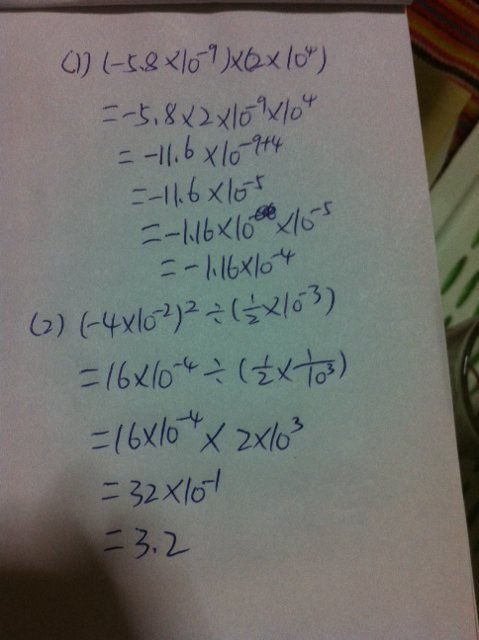 (1) (-5.8×10⁻⁹)×(2×10⁴)
=-5.8×2×10⁻⁹×10⁴
=-11.6×10⁻⁹⁺⁴
=-11.6×10⁻⁵
=-1.16×10 ×10⁻⁵
=-1.16×10⁻⁴
(2) (-4×10⁻²)²÷(1/2×10⁻³)
=16×10⁻⁴÷(1/2×1/10³)
=16×10⁻⁴×2×10³
=32×10⁻¹
=3.2